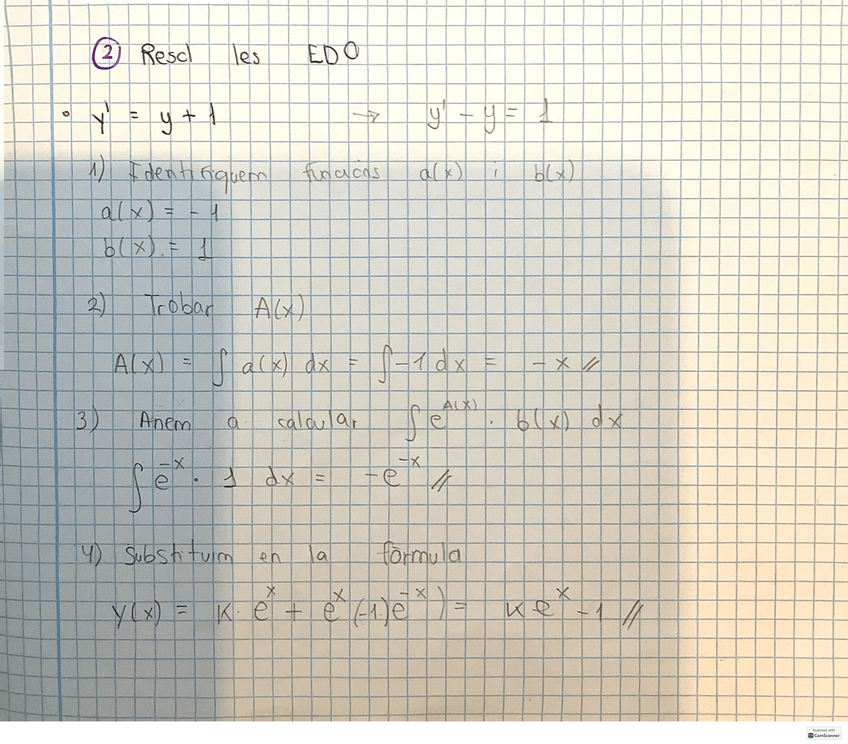 ② Resol les EDO
• y' = y + 1 → y' - y = 1
1) Identifiquem funcions a(x) i b(x)
a(x) = -1
b(x) = 1
2) Trobar A(x)
A(x) = ∫ a(x) dx = ∫ -1 dx = -x //
3) Anem a calcular ∫ e^A(x) · b(x) dx
∫ e^-x · 1 dx = -e^-x //
4) Substituim en la fórmula
y(x) = K · e^x + e^x (-1)e^-x) = K e^x - 1 //
Scanned with
CamScanner